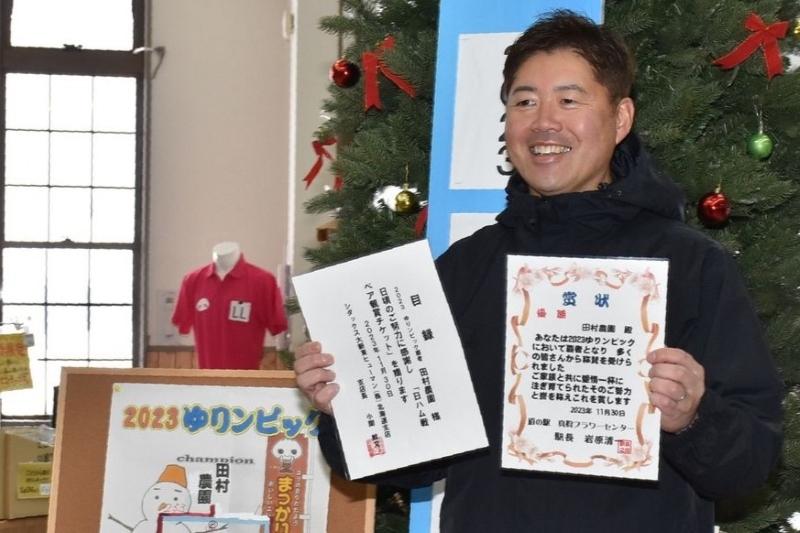 目録
2023 ゆりンピック覇者 田村農園 様
日頃のご努力に感謝し 「日ハム戦
ペア観賞チケット」を贈ります
2023年11月30日
シダックス大新東ヒューマン(株)北海道支店
支店長 小関
賞状
優勝
田村農園 殿
あなたは2023ゆりンピック
において覇者となり 多く
の皆さんから称賛を受けら
れました
ご家族と共に愛情一杯に
注ぎ育てられたそのご努力
と唇を称えこれを賞します
2023年 11月30日
道の駅 真狩フラワーセンター
駅長 岩原清一
LL
2023ゆりンピック
champion
田村
農園
まっかり
2023
②
3